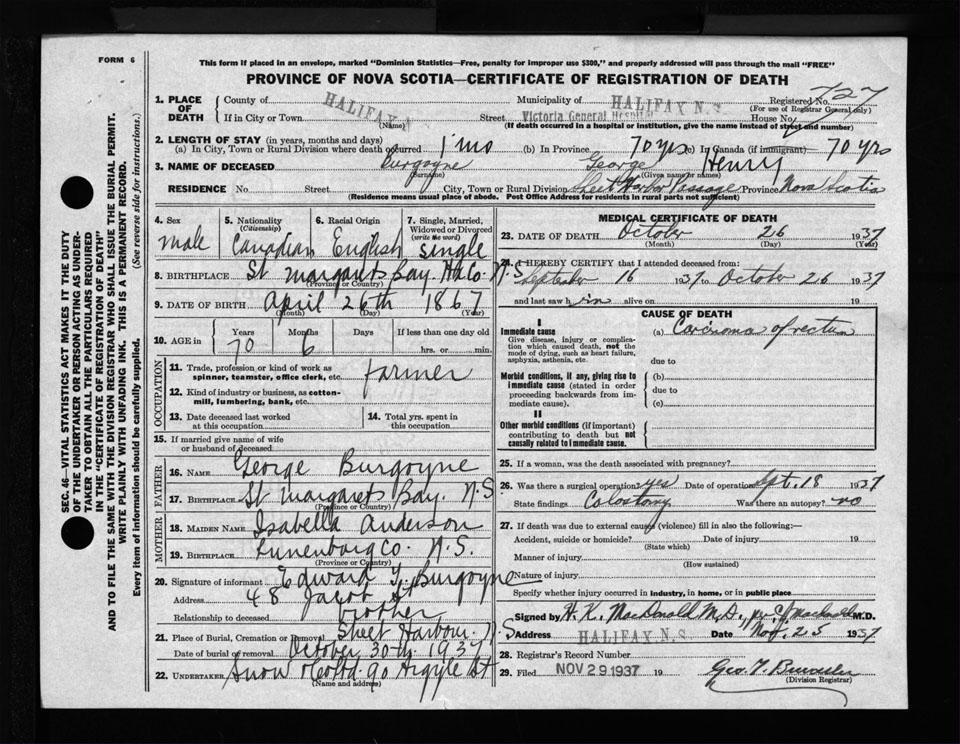 FORM 6
This form if placed in an envelope, marked "Dominion Statistics—Free, penalty for improper use $300," and properly addressed will pass through the mail "FREE"
PROVINCE OF NOVA SCOTIA—CERTIFICATE OF REGISTRATION OF DEATH
1. PLACE OF DEATH County of HALIFAX Municipality of HALIFAX N.S. Registered No. 727
(For use of Registrar General only)
If in City or Town (Name) Street Victoria General Hospital House No.
(If death occurred in a hospital or institution, give the name instead of street and number)
2. LENGTH OF STAY (in years, months and days)
(a) In City, Town or Rural Division where death occurred 1 mo (b) In Province 70 yrs (c) In Canada (if immigrant) 70 yrs
3. NAME OF DECEASED Burgoyne George Henry
(Surname) (Given name or names)
RESIDENCE No Street City, Town or Rural Division Sheet Harbor Passage Province Nova Scotia
(Residence means usual place of abode. Post Office Address for residents in rural parts not sufficient)
4. Sex male
5. Nationality (Citizenship) Canadian
6. Racial Origin English
7. Single, Married, Widowed or Divorced (write the word) single
8. BIRTHPLACE St Margarets Bay. Hfx Co. N.S
(Province or Country)
9. DATE OF BIRTH April 26th 1867
(Month) (Day) (Year)
10. AGE in Years 70 Months 6 Days If less than one day old hrs. or min.
OCCUPATION
11. Trade, profession or kind of work as spinner, teamster, office clerk, etc. farmer
12. Kind of industry or business, as cotton-mill, lumbering, bank, etc.
13. Date deceased last worked at this occupation
14. Total yrs. spent in this occupation
15. If married give name of wife or husband of deceased
FATHER
16. NAME George Burgoyne
17. BIRTHPLACE St Margarets Bay. N.S
(Province or Country)
MOTHER
18. MAIDEN NAME Isabella Anderson
19. BIRTHPLACE Lunenburg Co. N.S.
(Province or Country)
20. Signature of informant Edward Y. Burgoyne
Address 48 Jacob St
Relationship to deceased brother
21. Place of Burial, Cremation or Removal Sheet Harbour. N.S
Date of burial or removal October 30th 1937
22. UNDERTAKER Snow & Co Ltd 90 Argyle St
(Name and address)
MEDICAL CERTIFICATE OF DEATH
23. DATE OF DEATH October 26 1937
(Month) (Day) (Year)
24. I HEREBY CERTIFY that I attended deceased from:
September 16 1937 to October 26 1937
and last saw him alive on 19
CAUSE OF DEATH
I
Immediate cause
Give disease, injury or complication which caused death, not the mode of dying, such as heart failure, asphyxia, asthenia, etc.
(a) Carcinoma of rectum
due to
Morbid conditions, if any, giving rise to immediate cause (stated in order proceeding backwards from immediate cause).
(b)
due to
(c)
II
Other morbid conditions (if important) contributing to death but not causally related to immediate cause.
25. If a woman, was the death associated with pregnancy?
26. Was there a surgical operation? yes Date of operation Sept. 18 1937
State findings Colostomy Was there an autopsy? no
27. If death was due to external causes (violence) fill in also the following:—
Accident, suicide or homicide? Date of injury 19
(State which)
Manner of injury
(How sustained)
Nature of injury
Specify whether injury occurred in industry, in home, or in public place
Signed by H. K. MacDonald M.D., per M.D.
Address HALIFAX N.S. Date Nov. 25 1937
28. Registrar's Record Number
29. Filed NOV 29 1937 19 Geo. T.
(Division Registrar)
SEC. 46—VITAL STATISTICS ACT MAKES IT THE DUTY
OF THE UNDERTAKER OR PERSON ACTING AS UNDERTAKER
TO OBTAIN ALL THE PARTICULARS REQUIRED
IN THE "CERTIFICATE OF REGISTRATION OF DEATH"
AND TO FILE THE SAME WITH THE DIVISION REGISTRAR WHO SHALL ISSUE THE BURIAL PERMIT.
WRITE PLAINLY WITH UNFADING INK. THIS IS A PERMANENT RECORD.
Every item of information should be carefully supplied. (See reverse side for instructions.)